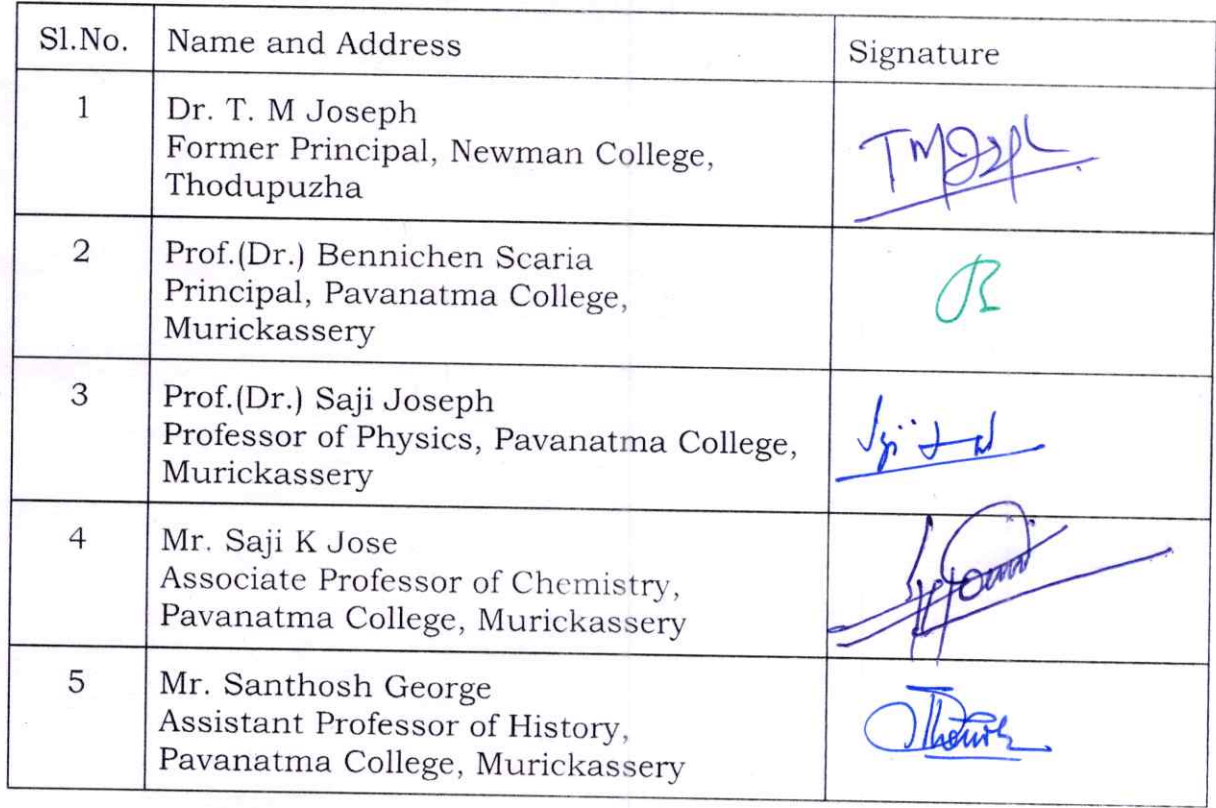 Sl.No. Name and Address Signature
1 Dr. T. M Joseph
Former Principal, Newman College,
Thodupuzha
TMJoseph
2 Prof.(Dr.) Bennichen Scaria
Principal, Pavanatma College,
Murickassery
3 Prof.(Dr.) Saji Joseph
Professor of Physics, Pavanatma College,
Murickassery
4 Mr. Saji K Jose
Associate Professor of Chemistry,
Pavanatma College, Murickassery
5 Mr. Santhosh George
Assistant Professor of History,
Pavanatma College, Murickassery